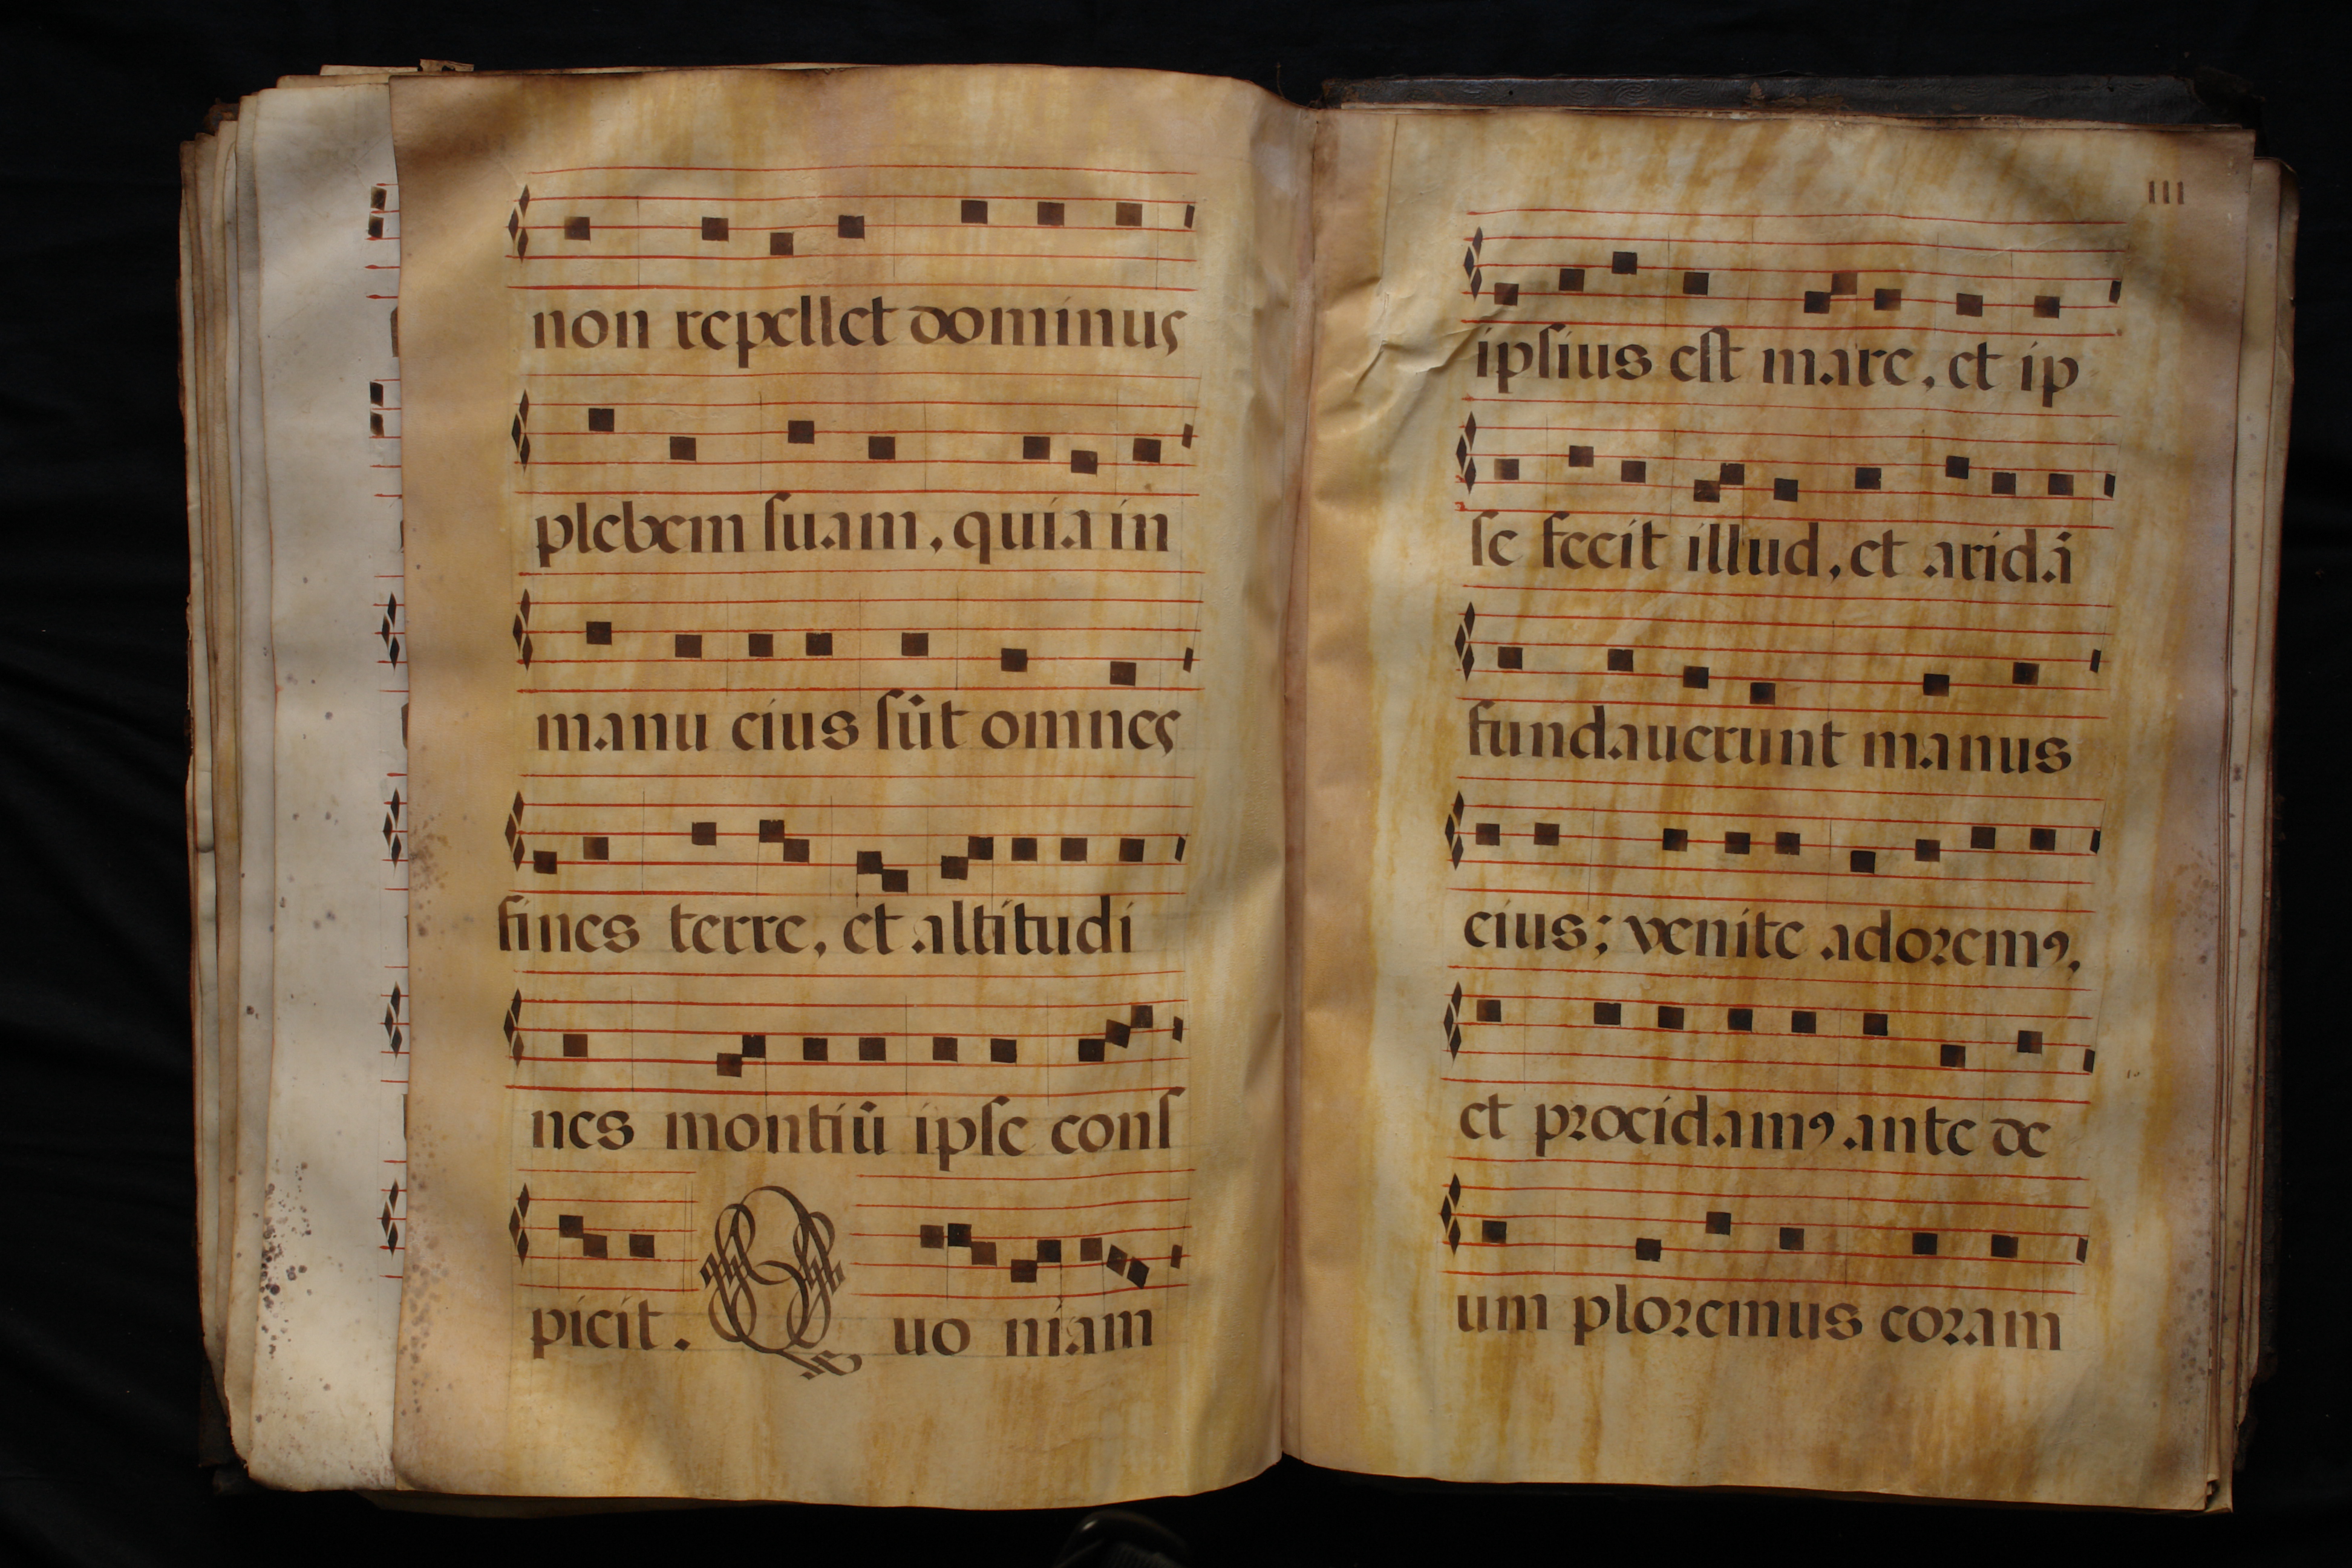 non repellet dominus
plebem ſuam, quia in
manu eius ſūt omnes
fines terre, et altitudi
nes montiū ipſe conſ
picit. Quo niam
III
ipſius eſt mare, et ip
ſe fecit illud, et aridā
fundauerunt manus
eius; venite adoꝛemꝯ,
et pꝛocidamꝯ ante de
um ploꝛemus coꝛam